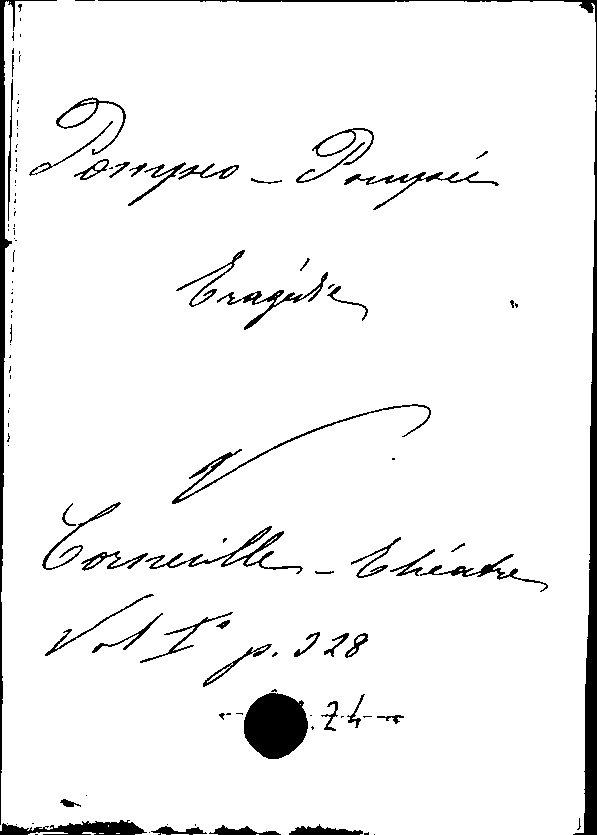 Pompeo - Pompée
Tragédie
V
Corneille - Théatre
Vol I° p. 328
. 24